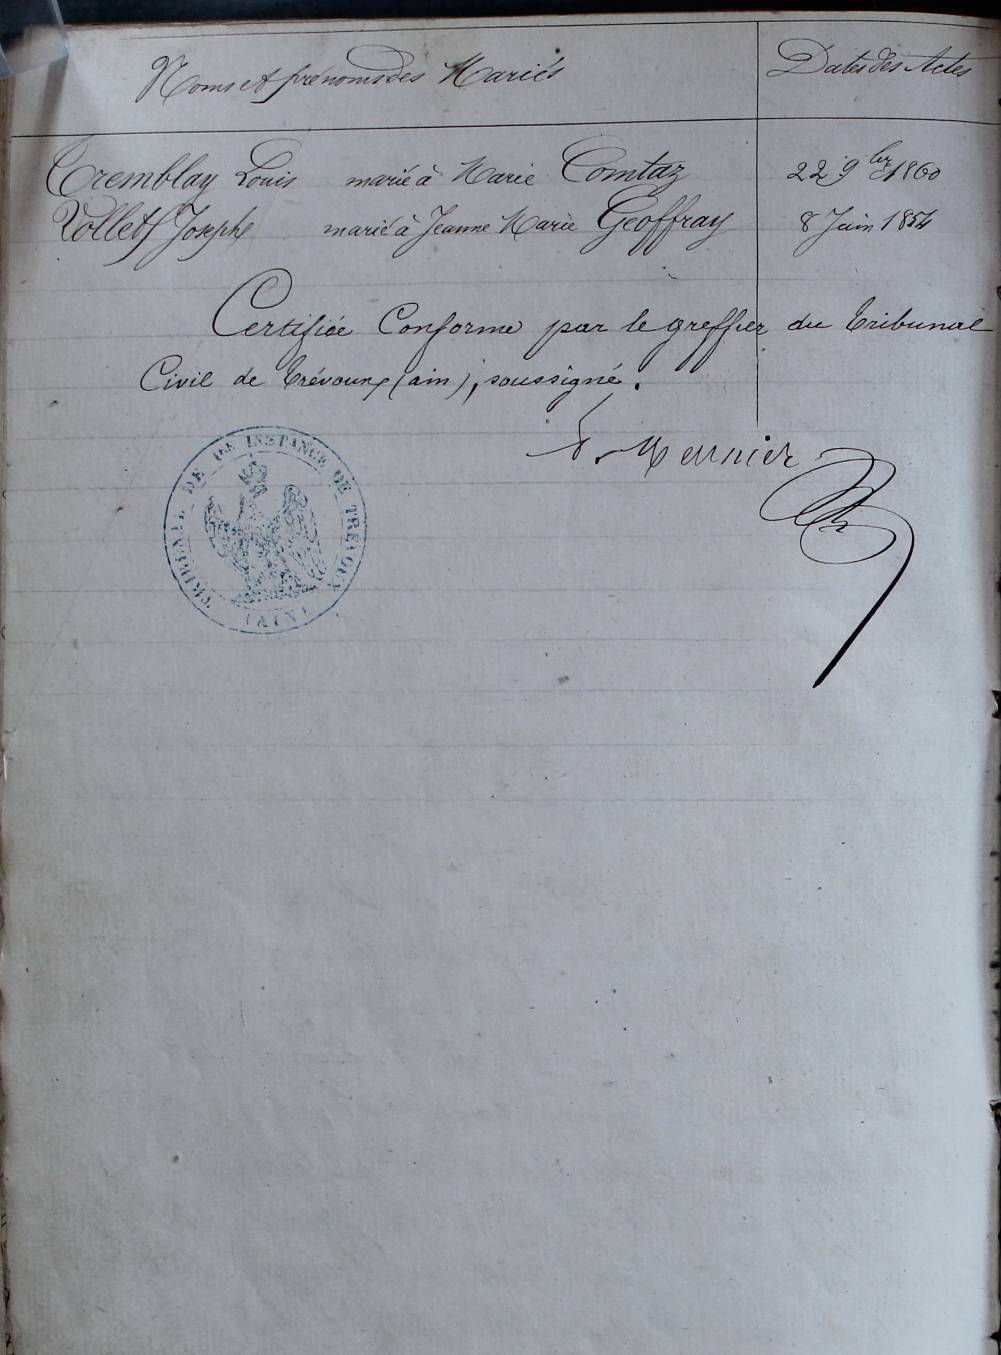 Noms et prénoms des Mariés Dates des Actes
Tremblay Louis marié à Marie Comtaz 22 9bre 1860
Vollet Joseph marié à Jeanne Marie Geoffray 8 Juin 1854
Certifiée Conforme par le greffier du tribunal
Civil de trévoux (ain), soussigné.
Meunier
TRIBUNAL DE 1ERE INSTANCE DE TREVOUX
(AIN)